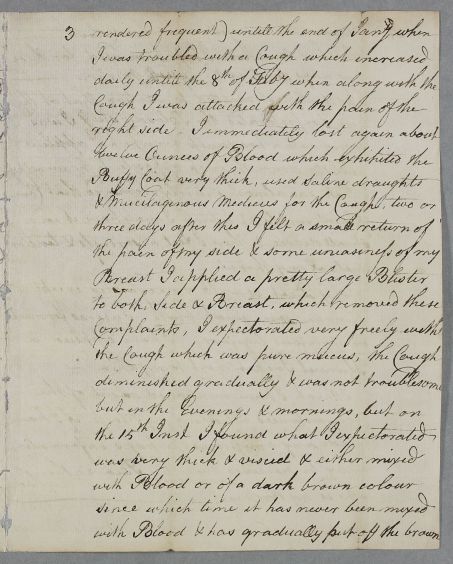 3 rendered frequent) untill the end of Jany when
I was troubled with a Cough which increased
daily untill the 8th of Feby when along with the
Cough I was attacked with the pain of the
right side. I immediately lost again about
twelve Ounces of Blood which exhibited the
Buffy Coat very thick, used Saline draughts
& Mucilaginous Medicines for the Cough, two or
three days after this I felt a small return of
the pain of my side & some uneasiness of my
Breast I applied a pretty large Blister
to both, Side & Breast, which removed these
Complaints, I expectorated very freely with
the Cough which was pure mucus, the Cough
diminished gradually & was not troublesome
but in the Evenings & mornings, but on
the 15th Inst I found what I expectorated
was very thick & viscid & either mixed
with Blood or of a dark brown colour
since which time it has never been mixed
with Blood & has gradually put off the brown